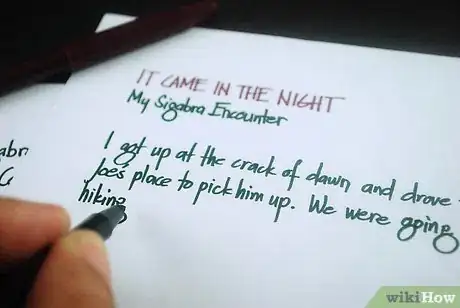 IT CAME IN THE NIGHT
My Sigabra Encounter
I got up at the crack of dawn and drove
Joe's place to pick him up. We were going
hiking
abr
wikiHow